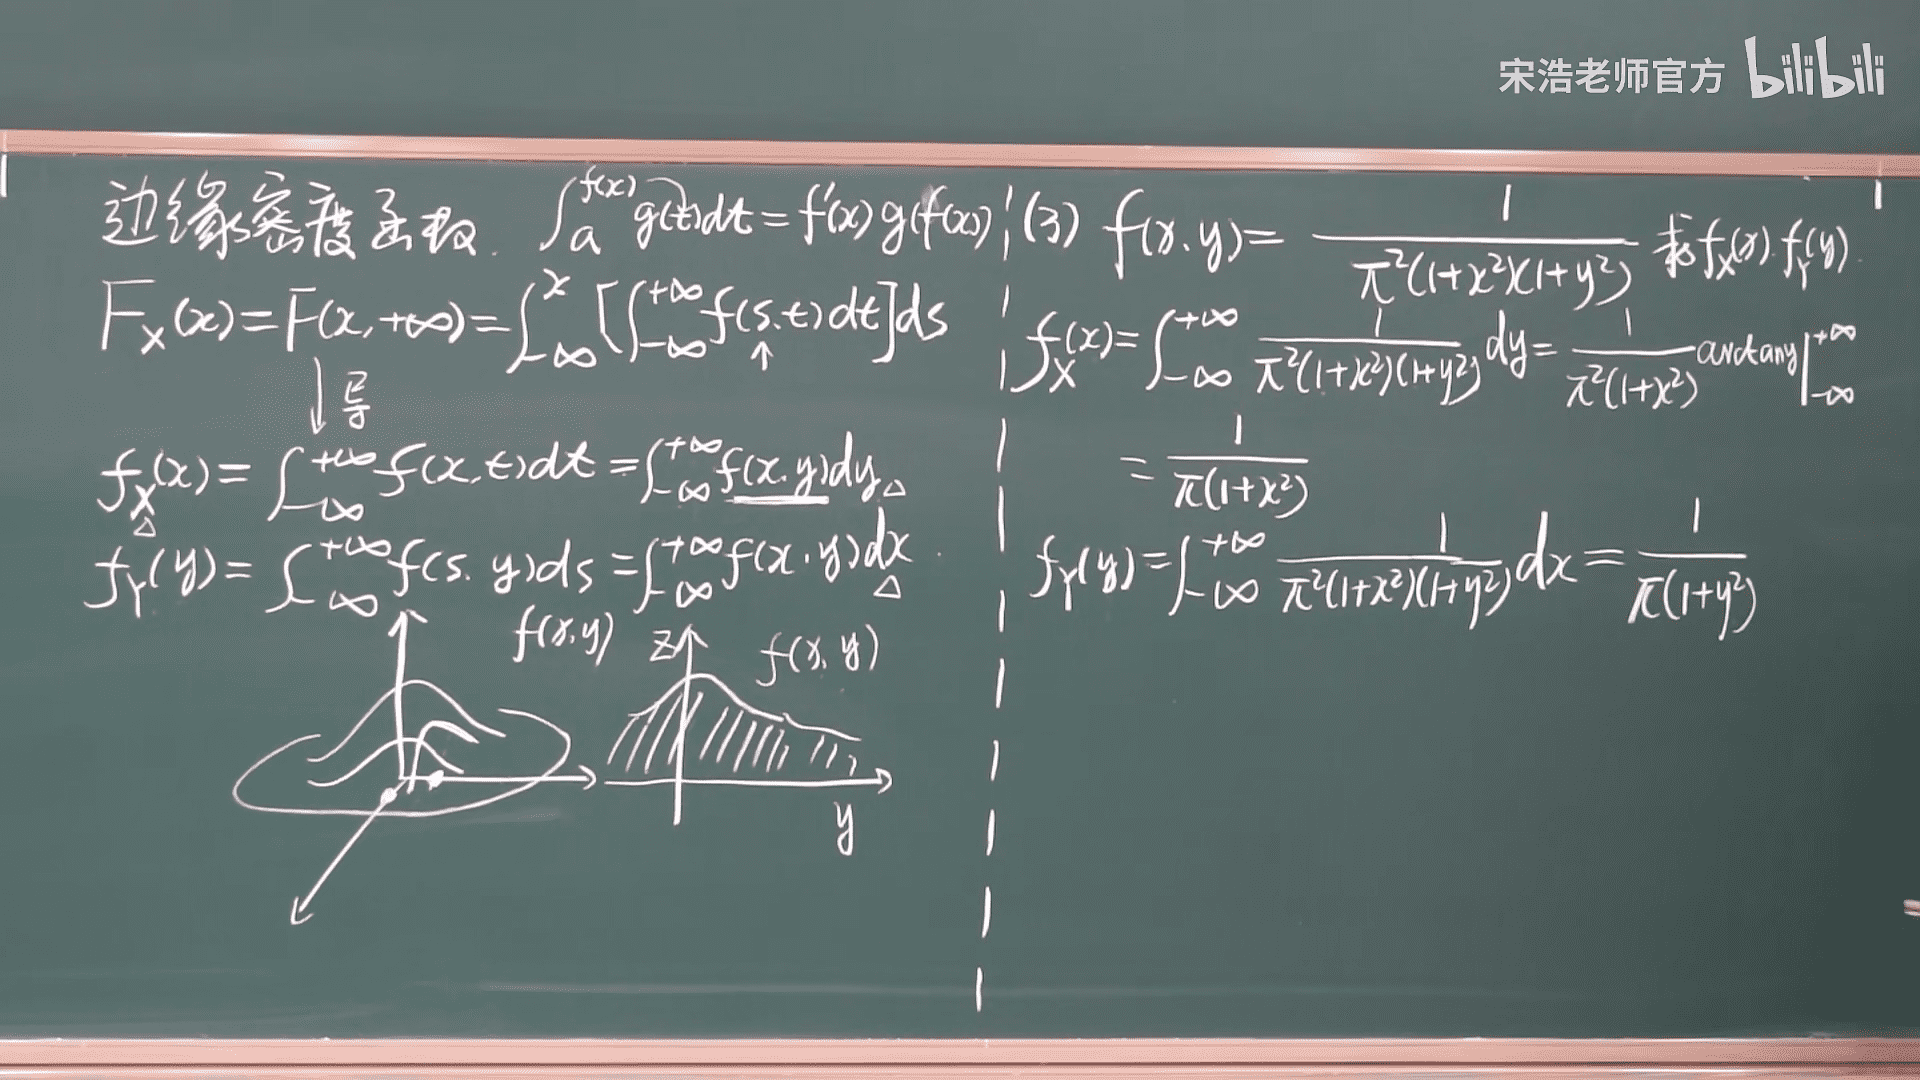 宋浩老师官方 bilibili
边缘密度函数. ∫_a^{f(x)} g(t)dt = f'(x) g(f(x))
F_X(x) = F(x,+∞) = ∫_{-∞}^{x} [∫_{-∞}^{+∞} f(s.t)dt]ds
↑
↓ 导
f_X(x) = ∫_{-∞}^{+∞} f(x,t)dt = ∫_{-∞}^{+∞} f(x.y)dy △
△
f_Y(y) = ∫_{-∞}^{+∞} f(s.y)ds = ∫_{-∞}^{+∞} f(x.y)dx .
△
f(x,y)
z f(x,y)
y
(3) f(x.y) = 1/(π²(1+x²)(1+y²)) 求f_X(x).f_Y(y).
f_X(x) = ∫_{-∞}^{+∞} 1/(π²(1+x²)(1+y²)) dy = 1/(π²(1+x²)) arctany|_{-∞}^{+∞}
= 1/(π(1+x²))
f_Y(y) = ∫_{-∞}^{+∞} 1/(π²(1+x²)(1+y²)) dx = 1/(π(1+y²))